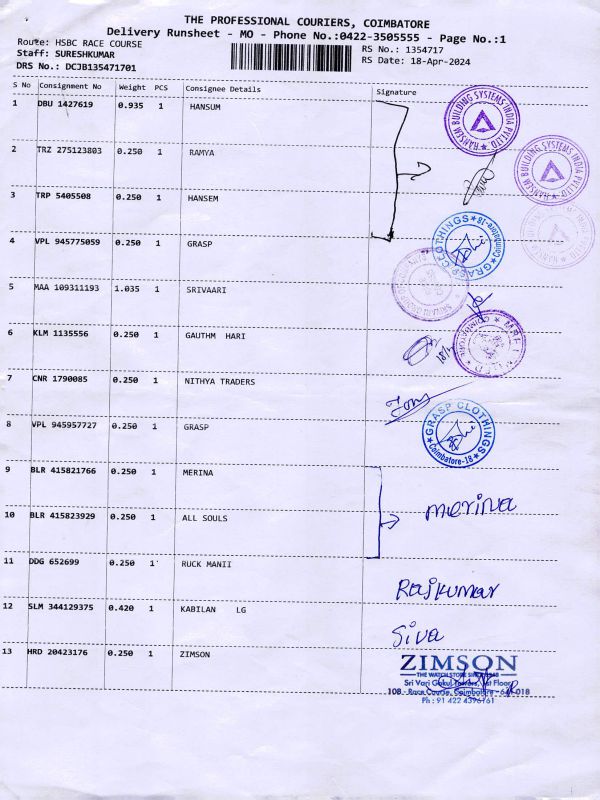 THE PROFESSIONAL COURIERS, COIMBATORE
Delivery Runsheet - MO - Phone No.:0422-3505555 - Page No.:1
Route: HSBC RACE COURSE
RS No.: 1354717
Staff: SURESHKUMAR
RS Date: 18-Apr-2024
DRS No.: DCJB135471701
S No Consignment No Weight PCS Consignee Details Signature
1 DBU 1427619 0.935 1 HANSUM
HANSEM BUILDING SYSTEMS INDIA PVT LTD
2 TRZ 275123803 0.250 1 RAMYA
HANSEM BUILDING SYSTEMS INDIA PVT LTD
3 TRP 5405508 0.250 1 HANSEM
4 VPL 945775059 0.250 1 GRASP
GRASP CLOTHINGS Coimbatore-18
5 MAA 109311193 1.035 1 SRIVAARI
6 KLM 1135556 0.250 1 GAUTHM HARI
7 CNR 1790085 0.250 1 NITHYA TRADERS
8 VPL 945957727 0.250 1 GRASP
GRASP CLOTHINGS Coimbatore-18
9 BLR 415821766 0.250 1 MERINA
merina
10 BLR 415823929 0.250 1 ALL SOULS
11 DDG 652699 0.250 1 RUCK MANII
Rajkumar
12 SLM 344129375 0.420 1 KABILAN LG
Siva
13 HRD 20423176 0.250 1 ZIMSON
ZIMSON
THE WATCH STORE
Sri Vari Gokul Towers, 1st Floor
108 - Race Course, Coimbatore - 641 018
Ph : 91 422 4396761